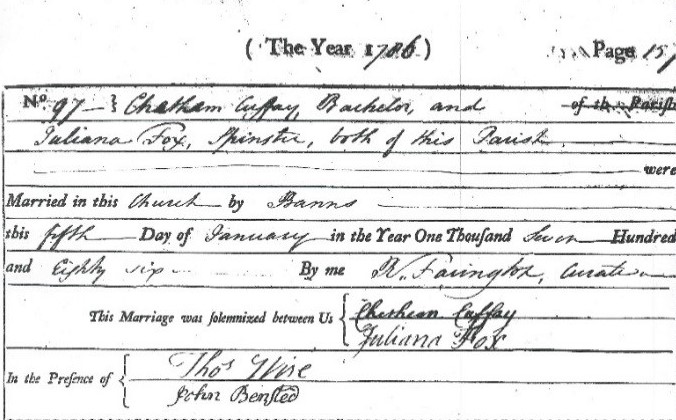 ( The Year 1786 ) Page 157
No. 97 } Chatham Cuffay, Bachelor, and of the Parish
Juliana Fox, Spinster, both of this Parish
were
Married in this Church by Banns
this fifth Day of January in the Year One Thousand Seven Hundred
and Eighty six By me R. Farington, Curate
This Marriage was solemnized between Us { Chatham Cuffay
Juliana Fox
In the Presence of { Thos Wise
John Bensted